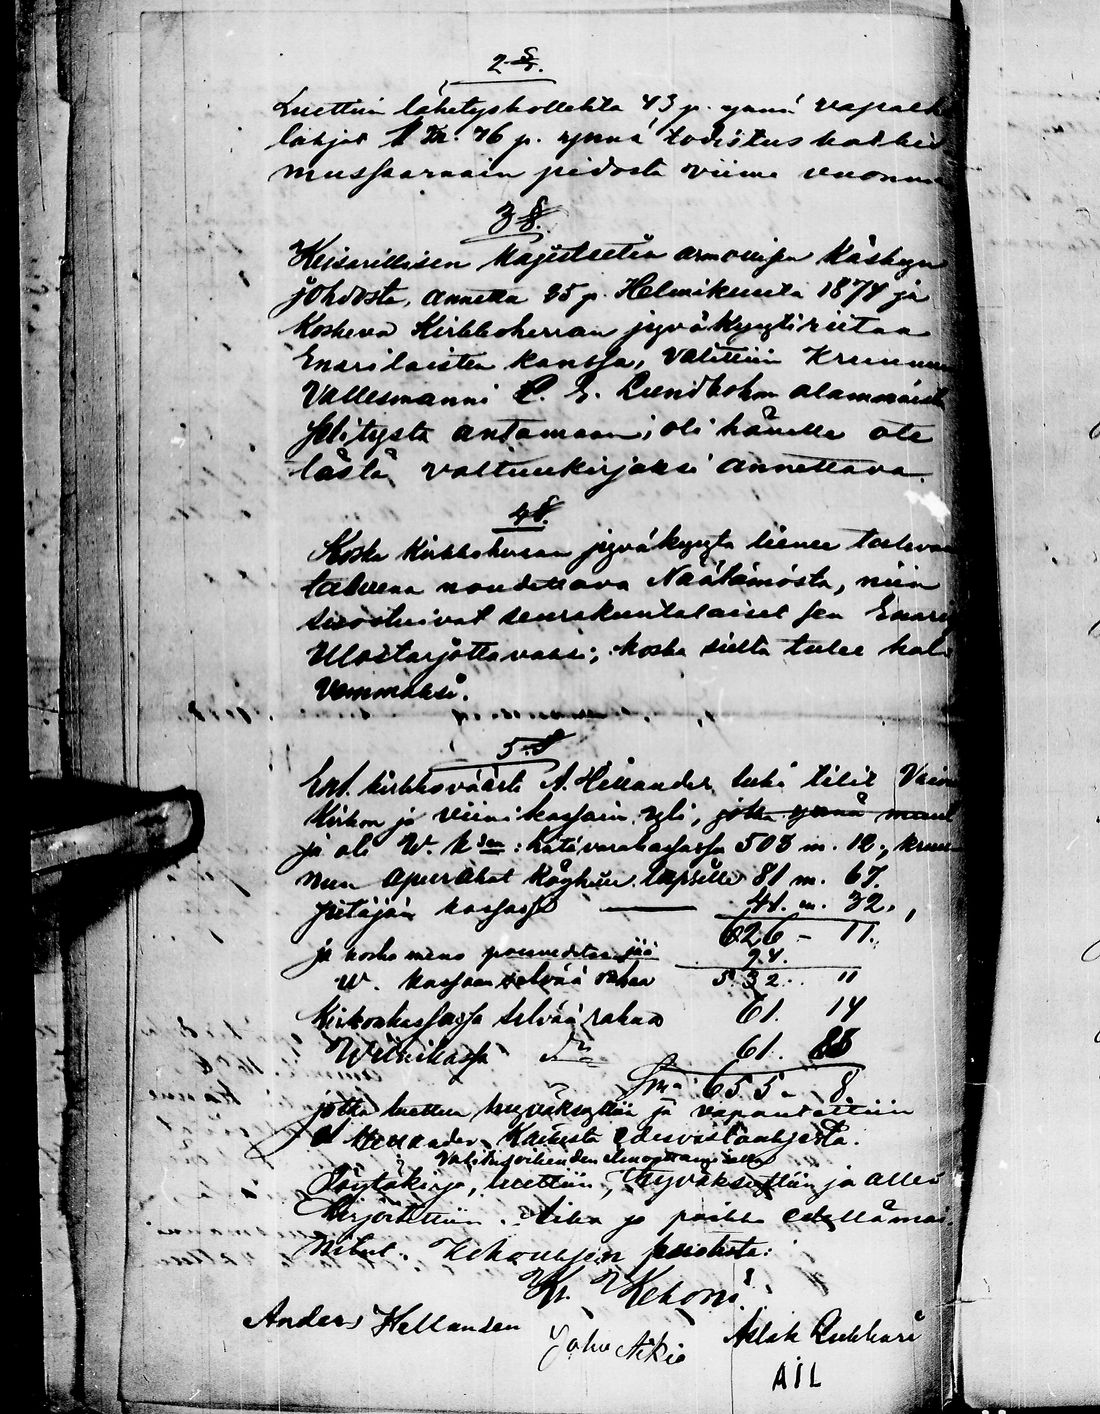 2 §.
Luettiin lähetyskollehta 43 p. ynnä vapaeh
lahjat 1 m. 76 p. ynnä todistus hat
mussaarnain pidosta viime vuonna
3 §.
Keisarillisen Majesteetin armollisen Käskyn
johdosta, annettu 25 p. Helmikuuta 1874 ja
koskeva Kirkkoherran jyväkyytiriitaa
Enarilaisten kanssa, valittiin Kruunun
Vallesmanni C. E. Lundbohm alamaista
selitystä antamaan; oli hänelle ote
tästä valtuukirjaksi annettava.
4 §.
Koska Kirkkoherran jyväkyytä lienee tulevan
talvena noudettava Näätämöstä, niin
suostuivat seurakuntalaiset sen Enari
Ulostarjottavaksi; koska sieltä tulee hal
vemmaksi.
5 §
Ent. kirkkoväärti A. Hellander luki tilit Vaivais
Kirkon ja viinikassain yli, jotka ynnä muut
ja oli W. k:den: käteisvarakassassa 503 m. 12., kruu-
nun apurahat Köyhille lapsille 81 m. 67.
pitäjän kassassa 41. m. 32.,
626 – 11.
ja koska meno poisvedetään jää 94.
W. kassaan selvää rahaa 532. 11
Kirkonkassassa selvää rahaa 61. 14
Wiinikassa D:o 61. 83
Sma 655 „ 8
jotka luettiin hyväksyttiin ja vapautettiin
A Hellander kaikesta edesvastauksesta.
Valitusoikeuden ilmoittamisella
Pöytäkirja, luettiin, hyväksyttiin ja alle
kirjoitettiin. Aika ja paikka edellämai
nitut. Kokouksen puolesta:
Kr. Hekoni
Anders Hellander
Johu Aikio Aslak Kukkari
AIL